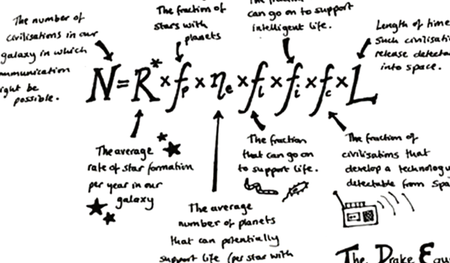 The number of
civilisations in our
galaxy in which
might be
possible.
The fraction of
stars with
planets
can go on to support
intelligent life.
Length of time
such civilisations
release
into space.
N=R*×fp×ne×fl×fi×fc×L
The average
rate of star formation
per year in our
galaxy
The average
number of planets
that can potentially
support life (per star with
The fraction
that can go on
to support life.
The fraction of
civilisations that
develop a
detectable from
The Drake